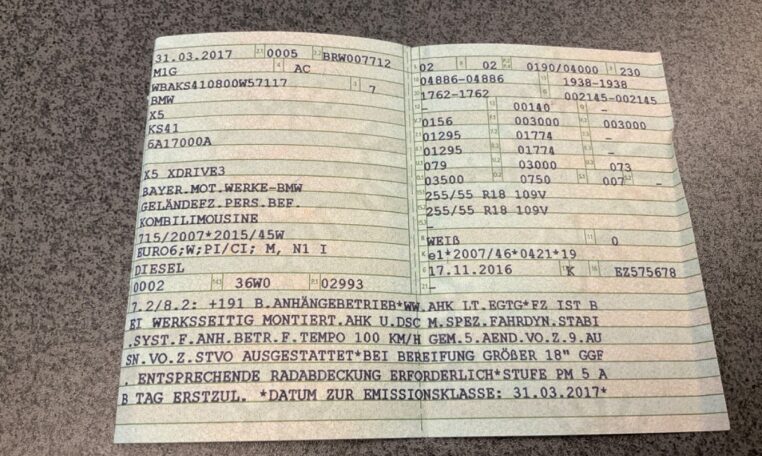 31.03.2017 0005 BRW007712
M1G AC
WBAKS410800W57117 7
BMW
X5
KS41
6A17000A
X5 XDRIVE3
BAYER.MOT.WERKE-BMW
GELÄNDEFZ.PERS.BEF.
KOMBILIMOUSINE
715/2007*2015/45W
EURO6;W;PI/CI; M, N1 I
DIESEL
0002 36W0 02993
02 02 0190/04000 230
04886-04886 1938-1938
1762-1762 002145-002145
- 00140 -
0156 003000 003000
01295 01774 -
01295 01774 -
079 03000 073
03500 0750 007 -
255/55 R18 109V
255/55 R18 109V
-
WEIß 0
e1*2007/46*0421*19
17.11.2016 K EZ575678
-
7.2/8.2: +191 B.ANHÄNGEBETRIEB*WW.AHK LT.EGTG*FZ IST B
EI WERKSSEITIG MONTIERT.AHK U.DSC M.SPEZ.FAHRDYN.STABI
.SYST.F.ANH.BETR.F.TEMPO 100 KM/H GEM.5.AEND.VO.Z.9.AU
SN.VO.Z.STVO AUSGESTATTET*BEI BEREIFUNG GRÖßER 18" GGF
. ENTSPRECHENDE RADABDECKUNG ERFORDERLICH*STUFE PM 5 A
B TAG ERSTZUL. *DATUM ZUR EMISSIONSKLASSE: 31.03.2017*